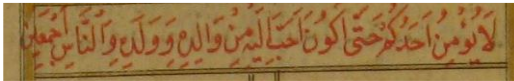 لَا يُؤْمِنُ اَحَدُكُمْ حَتَّى اَكُونَ اَحَبَّ اِلَيْهِ مِنْ وَالِدِهِ وَوَلَدِهِ وَالنَّاسِ اَجْمَعِينَ